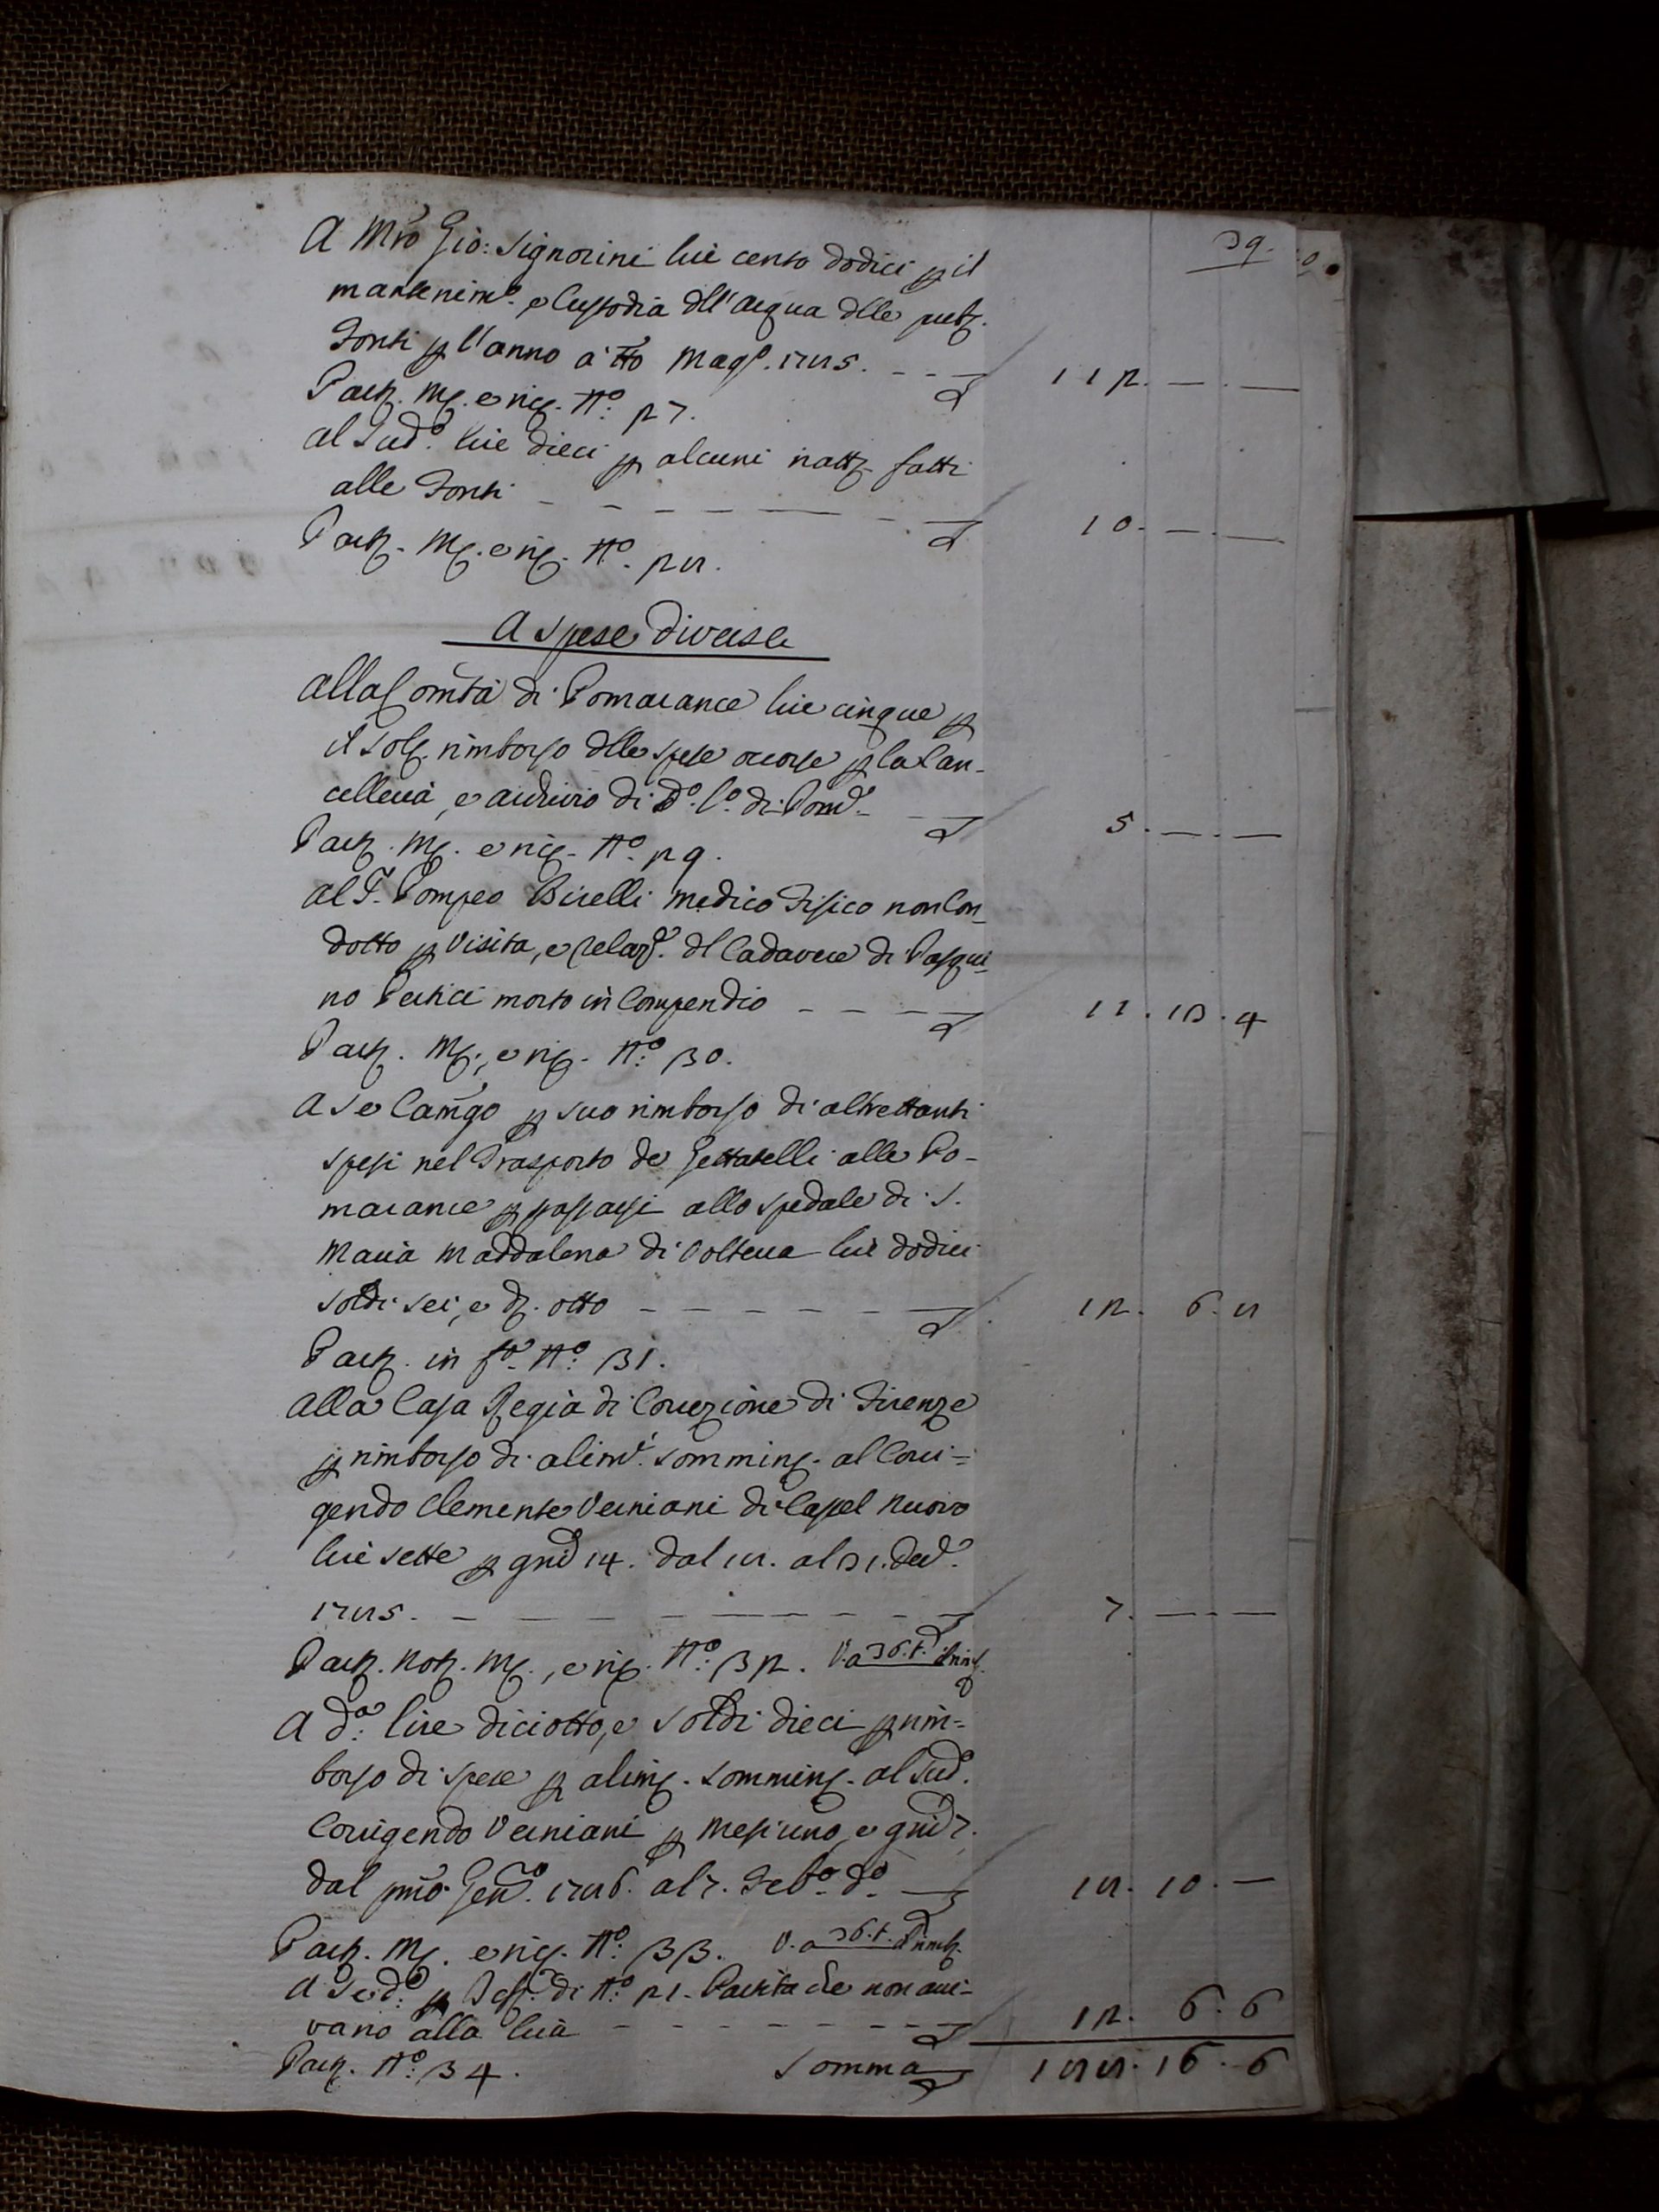 39.
A Mro Gio: Signorini lire cento dodici p il
mantenimo. e Custodia dll'acqua dlle pub.
Fonti p l'anno a tto Mago. 1785. - - - 112. — . —
Part. Mg. e ric. No. 27.
al Sudo. lire dieci p alcuni riatt. fatti
alle Fonti - - - - - 10. — . —
Part. Mg. e ric. No. 28.
A Spese Diverse
alla Comtà di Pomarance lire cinque p
il sol. rimborso dlle spese occorse p la Can-
celleria, e archivio di Do. Co. di Pome. 5. — . —
Part. Mg. e ric. No. 29.
al S. Pompeo Bicelli medico Fisico non Con-
dotto p visita, e relaze. dl Cadavere di Pasqui-
no Pertici morto in Compendio - - - - 11. 13. 4
Part. Mg., e ric. No. 30.
a Se Camgo p suo rimborso di altrettanti
spesi nel Trasporto de Gettatelli alle Po-
marance p passarsi allo Spedale di S.
Maria Maddalena di Volterra lire dodici
soldi sei, e d. otto - - - - - - 12. 6. 8
Part. in fo. No. 31.
alla Casa Regia di Correzione di Firenze
p rimborso di alimti. somming. al Corri=
gendo Clemente Verniani di Castel Nuovo
lire sette p gni 14. dal 18. al 31. Dece.
1785. - - - - - - - - 7. — . —
Part. Not. Mg., e ric. No. 32. V. a 36. t.
A da. lire diciotto, e soldi dieci p rim=
borso di spese p alim. somming. al Sudo.
Corrigendo Verniani p Mesi uno, e gni 7.
dal pmo Geno. 1786. al 7. Febo. do. 18. 10. —
Part. Mg. e ric. No. 33. V. a 36. t.
A Sedo. p di No. 21. Partite che non arri-
vano alla lira - - - - - - - 12. 6. 6
Part. No. 34. Somma 188. 16. 6